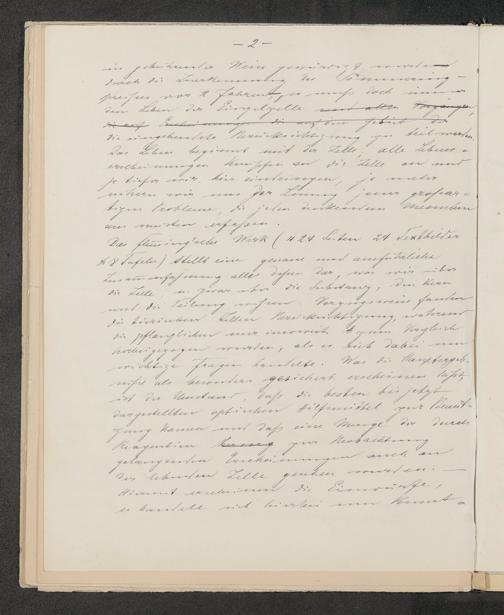 — 2 —
in gebührender Weise gewürdigt worden
durch die Zuerkennung des Sömmering-
preises vor 2 Jahren, so muß doch immer
dem Leben der Einzelzelle
die eingehendste Berücksichtigung zu teil werden.
Das Leben beginnt mit der Zelle, alle Lebens-
erscheinungen knüpfen an die Zelle an und
je tiefer wir hier eindringen, je mehr
nähern wir uns der Lösung jener großar-
tigen Probleme, die jeden denkenden Menschen
am meisten erfassen.
Das Flemming'sche Werk (424 Seiten 24 Textbilder
& 8 Tafeln) stellt eine genaue und ausführliche
Zusammenfassung alles dessen dar, was wir über
die Zelle, u. zwar über die Substanz, den Kern
und die Teilung wissen. Vorzugsweise fanden
die tierischen Zellen Berücksichtigung, während
die pflanzlichen nur insoweit zum Vergleich
herbeigezogen wurden, als es sich dabei um
wichtige Fragen handelte. Was die Hauptergeb-
nisse als besonders gesichert erscheinen läßt,
ist der Umstand, daß die besten bis jetzt
dargestellten optischen Hilfsmittel zur Benüt-
zung kamen und daß eine Menge der durch
Reagentien zur Beobachtung
gelangenden Erscheinungen auch an
der lebenden Zelle gesehen wurden. —
Hiermit erscheinen die Einwürfe,
es handele sich hierbei um Kunst-